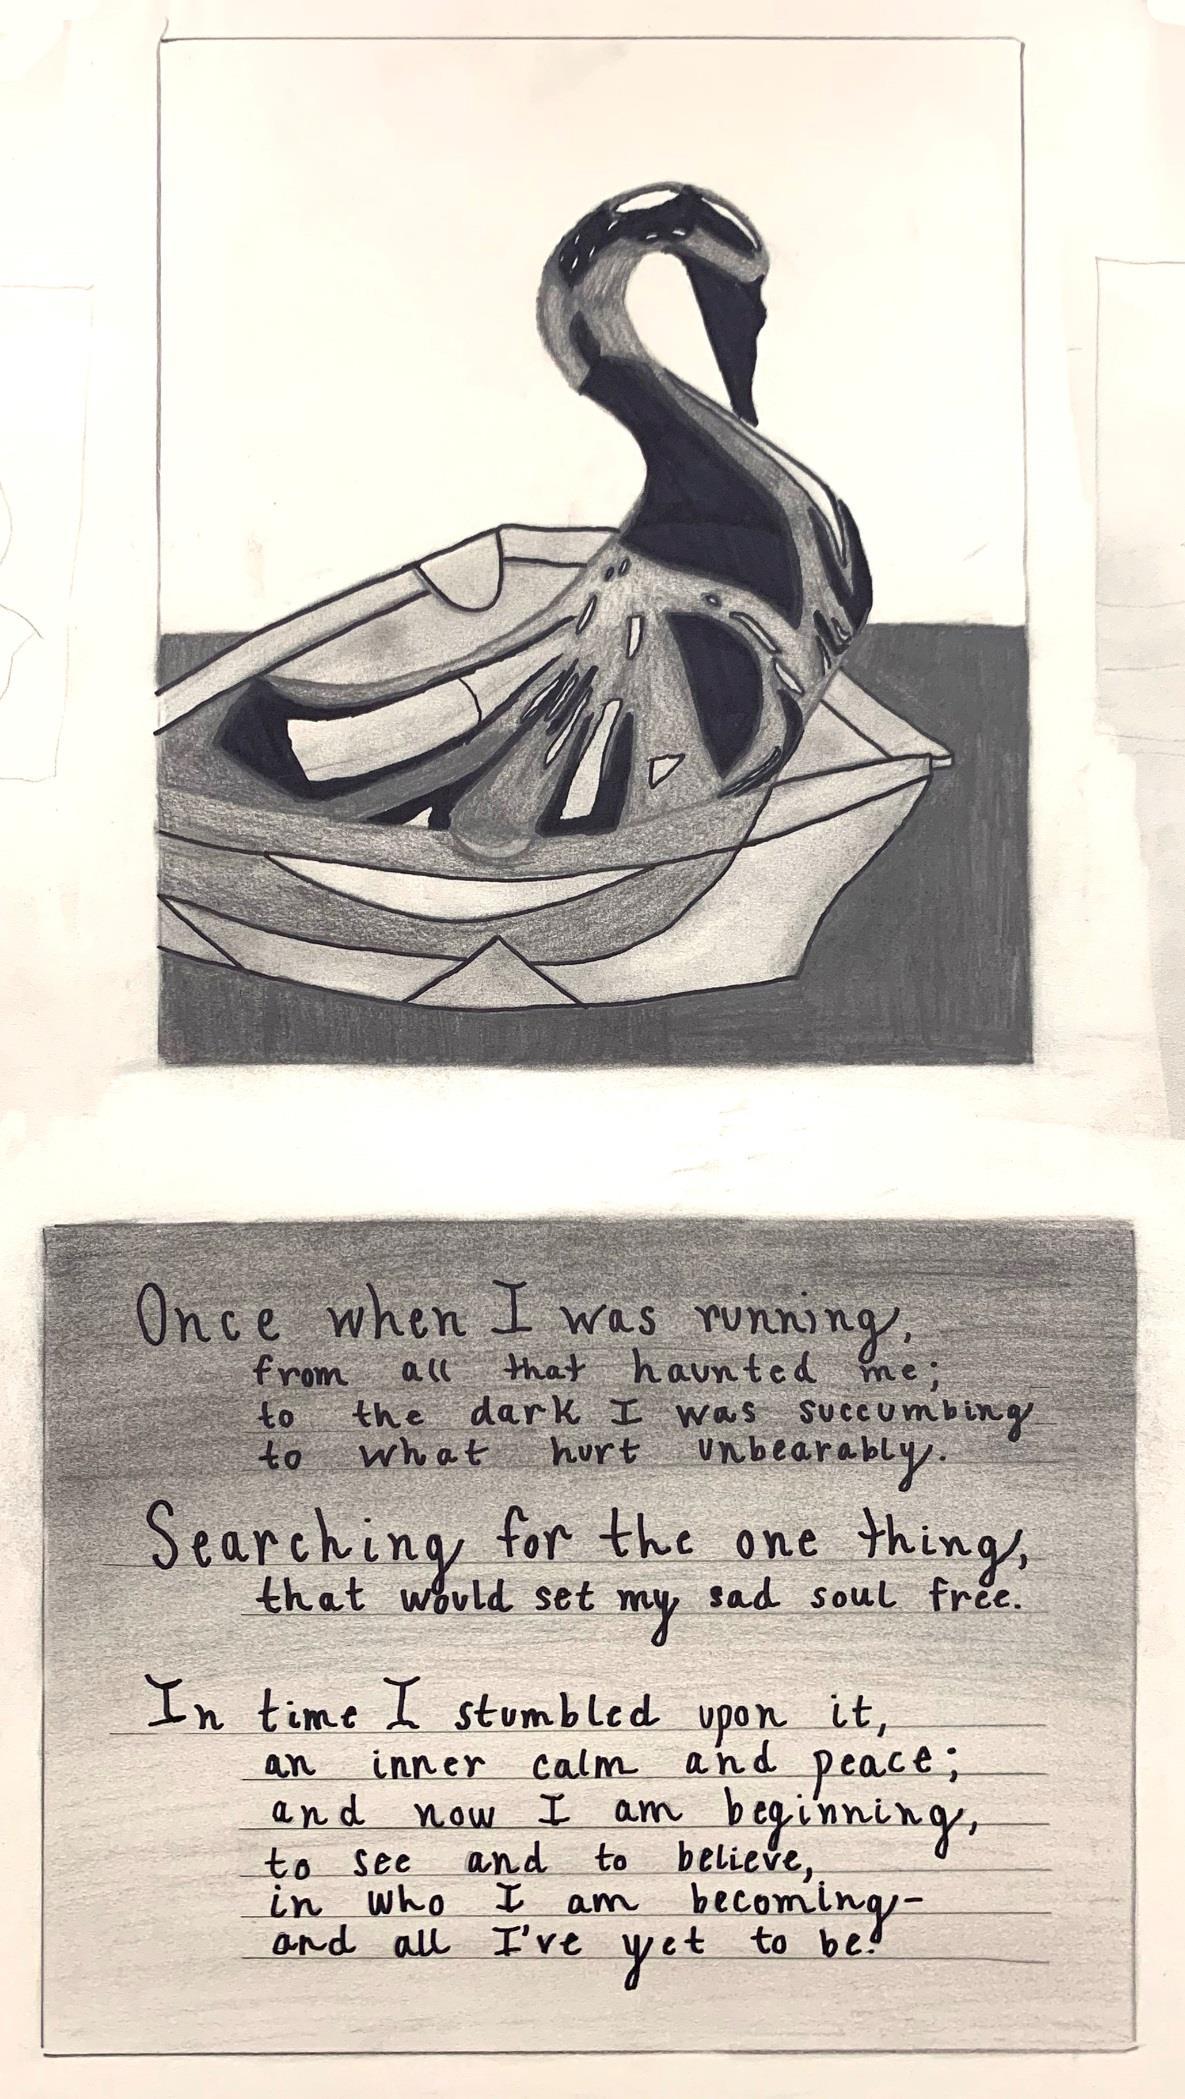 Once when I was running,
from all that haunted me;
to the dark I was succumbing
to what hurt unbearably.
Searching for the one thing,
that would set my sad soul free.
In time I stumbled upon it,
an inner calm and peace;
and now I am beginning,
to see and to believe,
in who I am becoming-
and all I've yet to be.